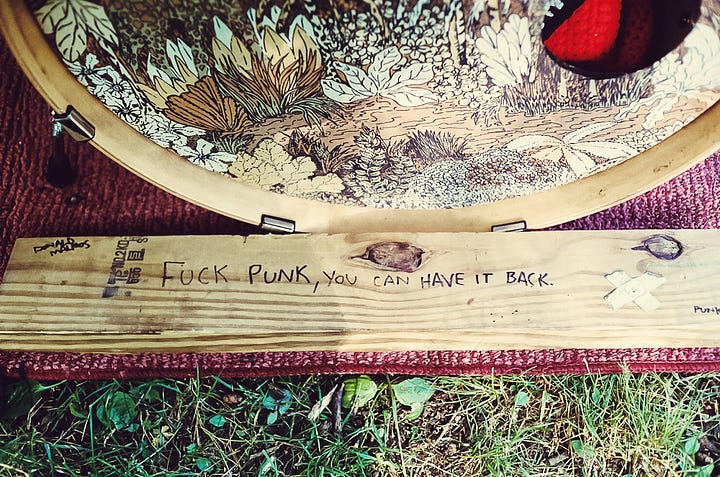 DONALD
MATEOS
FUCK PUNK, YOU CAN HAVE IT BACK.
PUNK